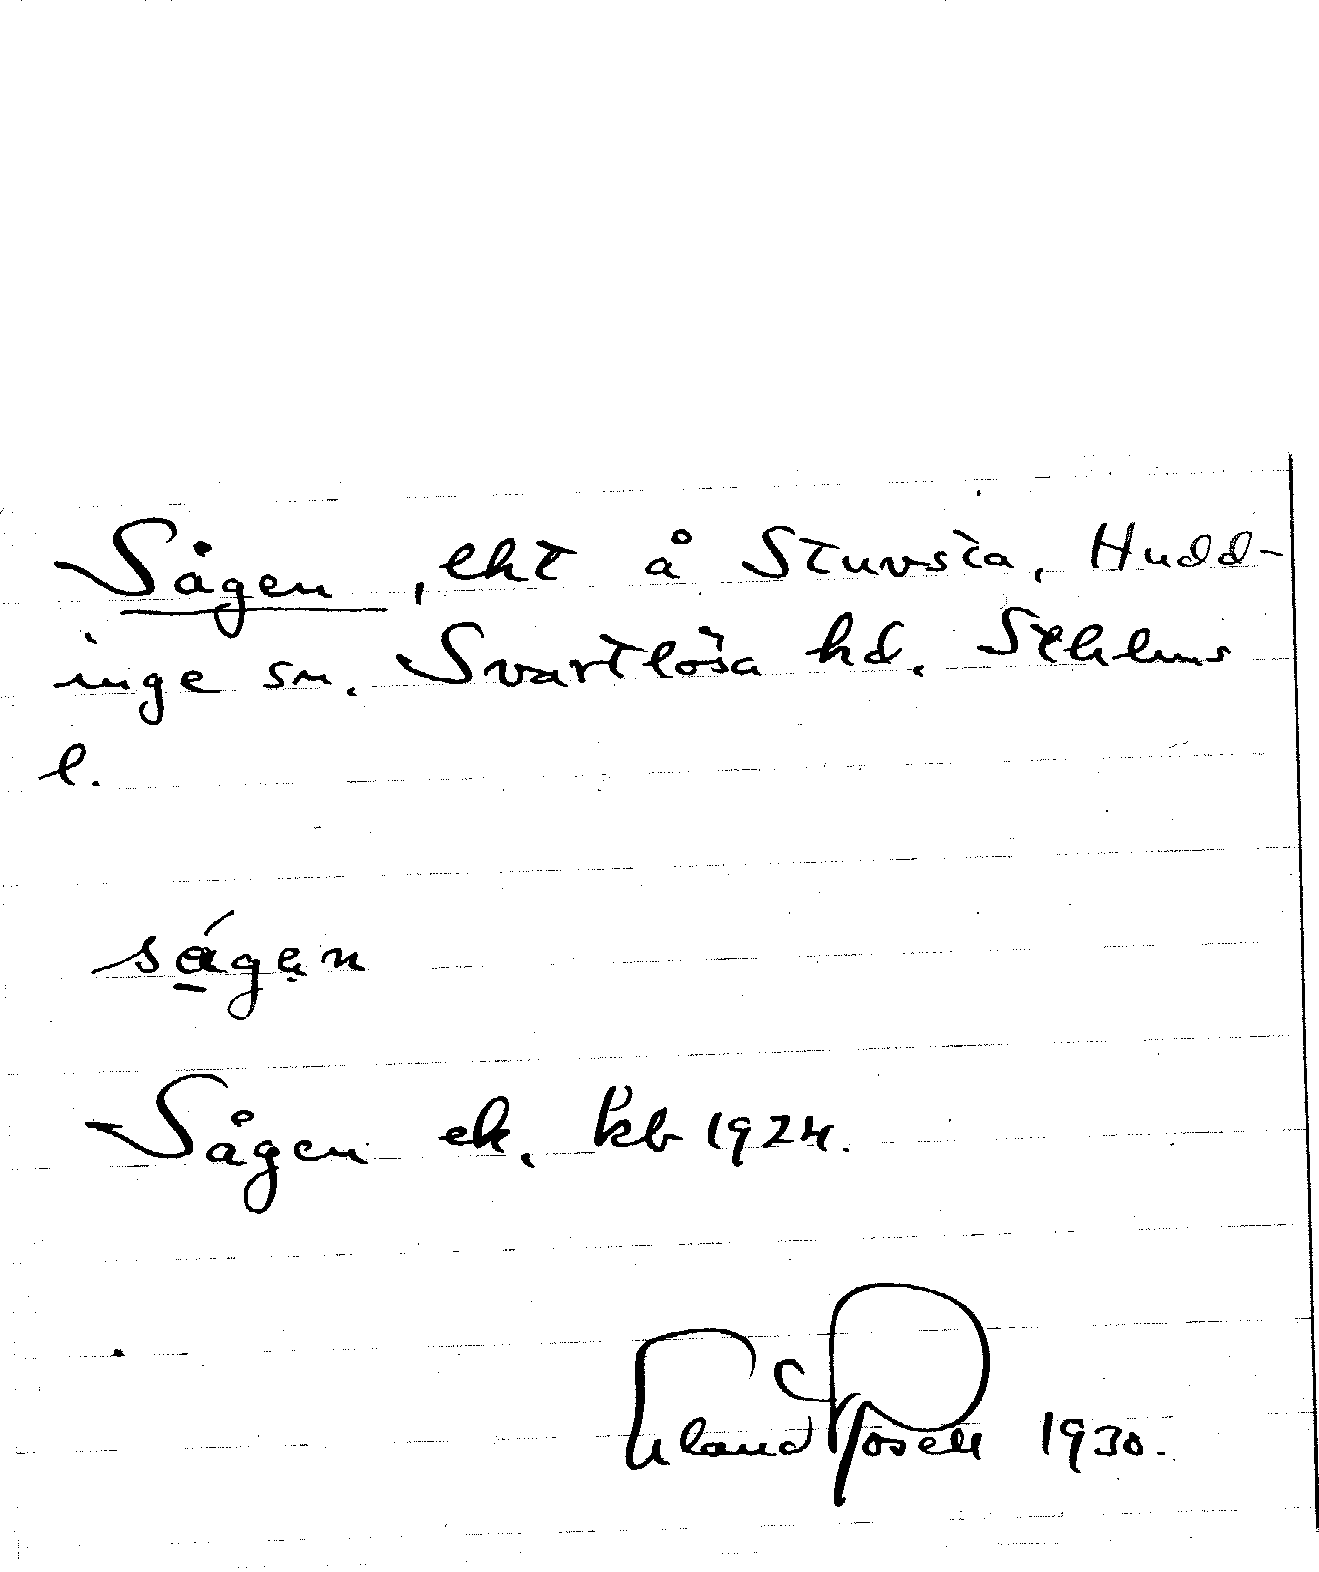 Sågen, lht å Stuvsta, Hudd-
inge sn. Svartlösa hd. Sthlms
l.
ságen
Sågen lh. kb 1924.
Erland Rosell 1930.